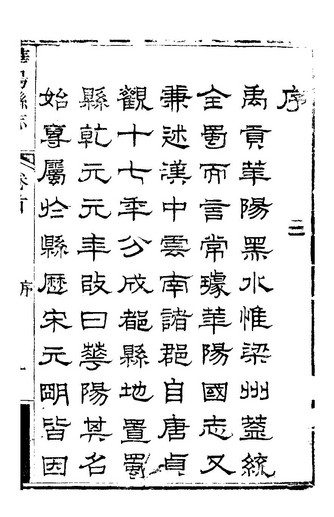 序
二
禹貢華陽黑水惟梁州蓋統
全蜀而言常璩華陽國志又
兼述漢中雲南諸郡自唐貞
觀十七年分成都縣地置蜀
縣乾元元年改曰華陽其名
始專屬於縣歷宋元明皆因
華陽縣志
卷首
序